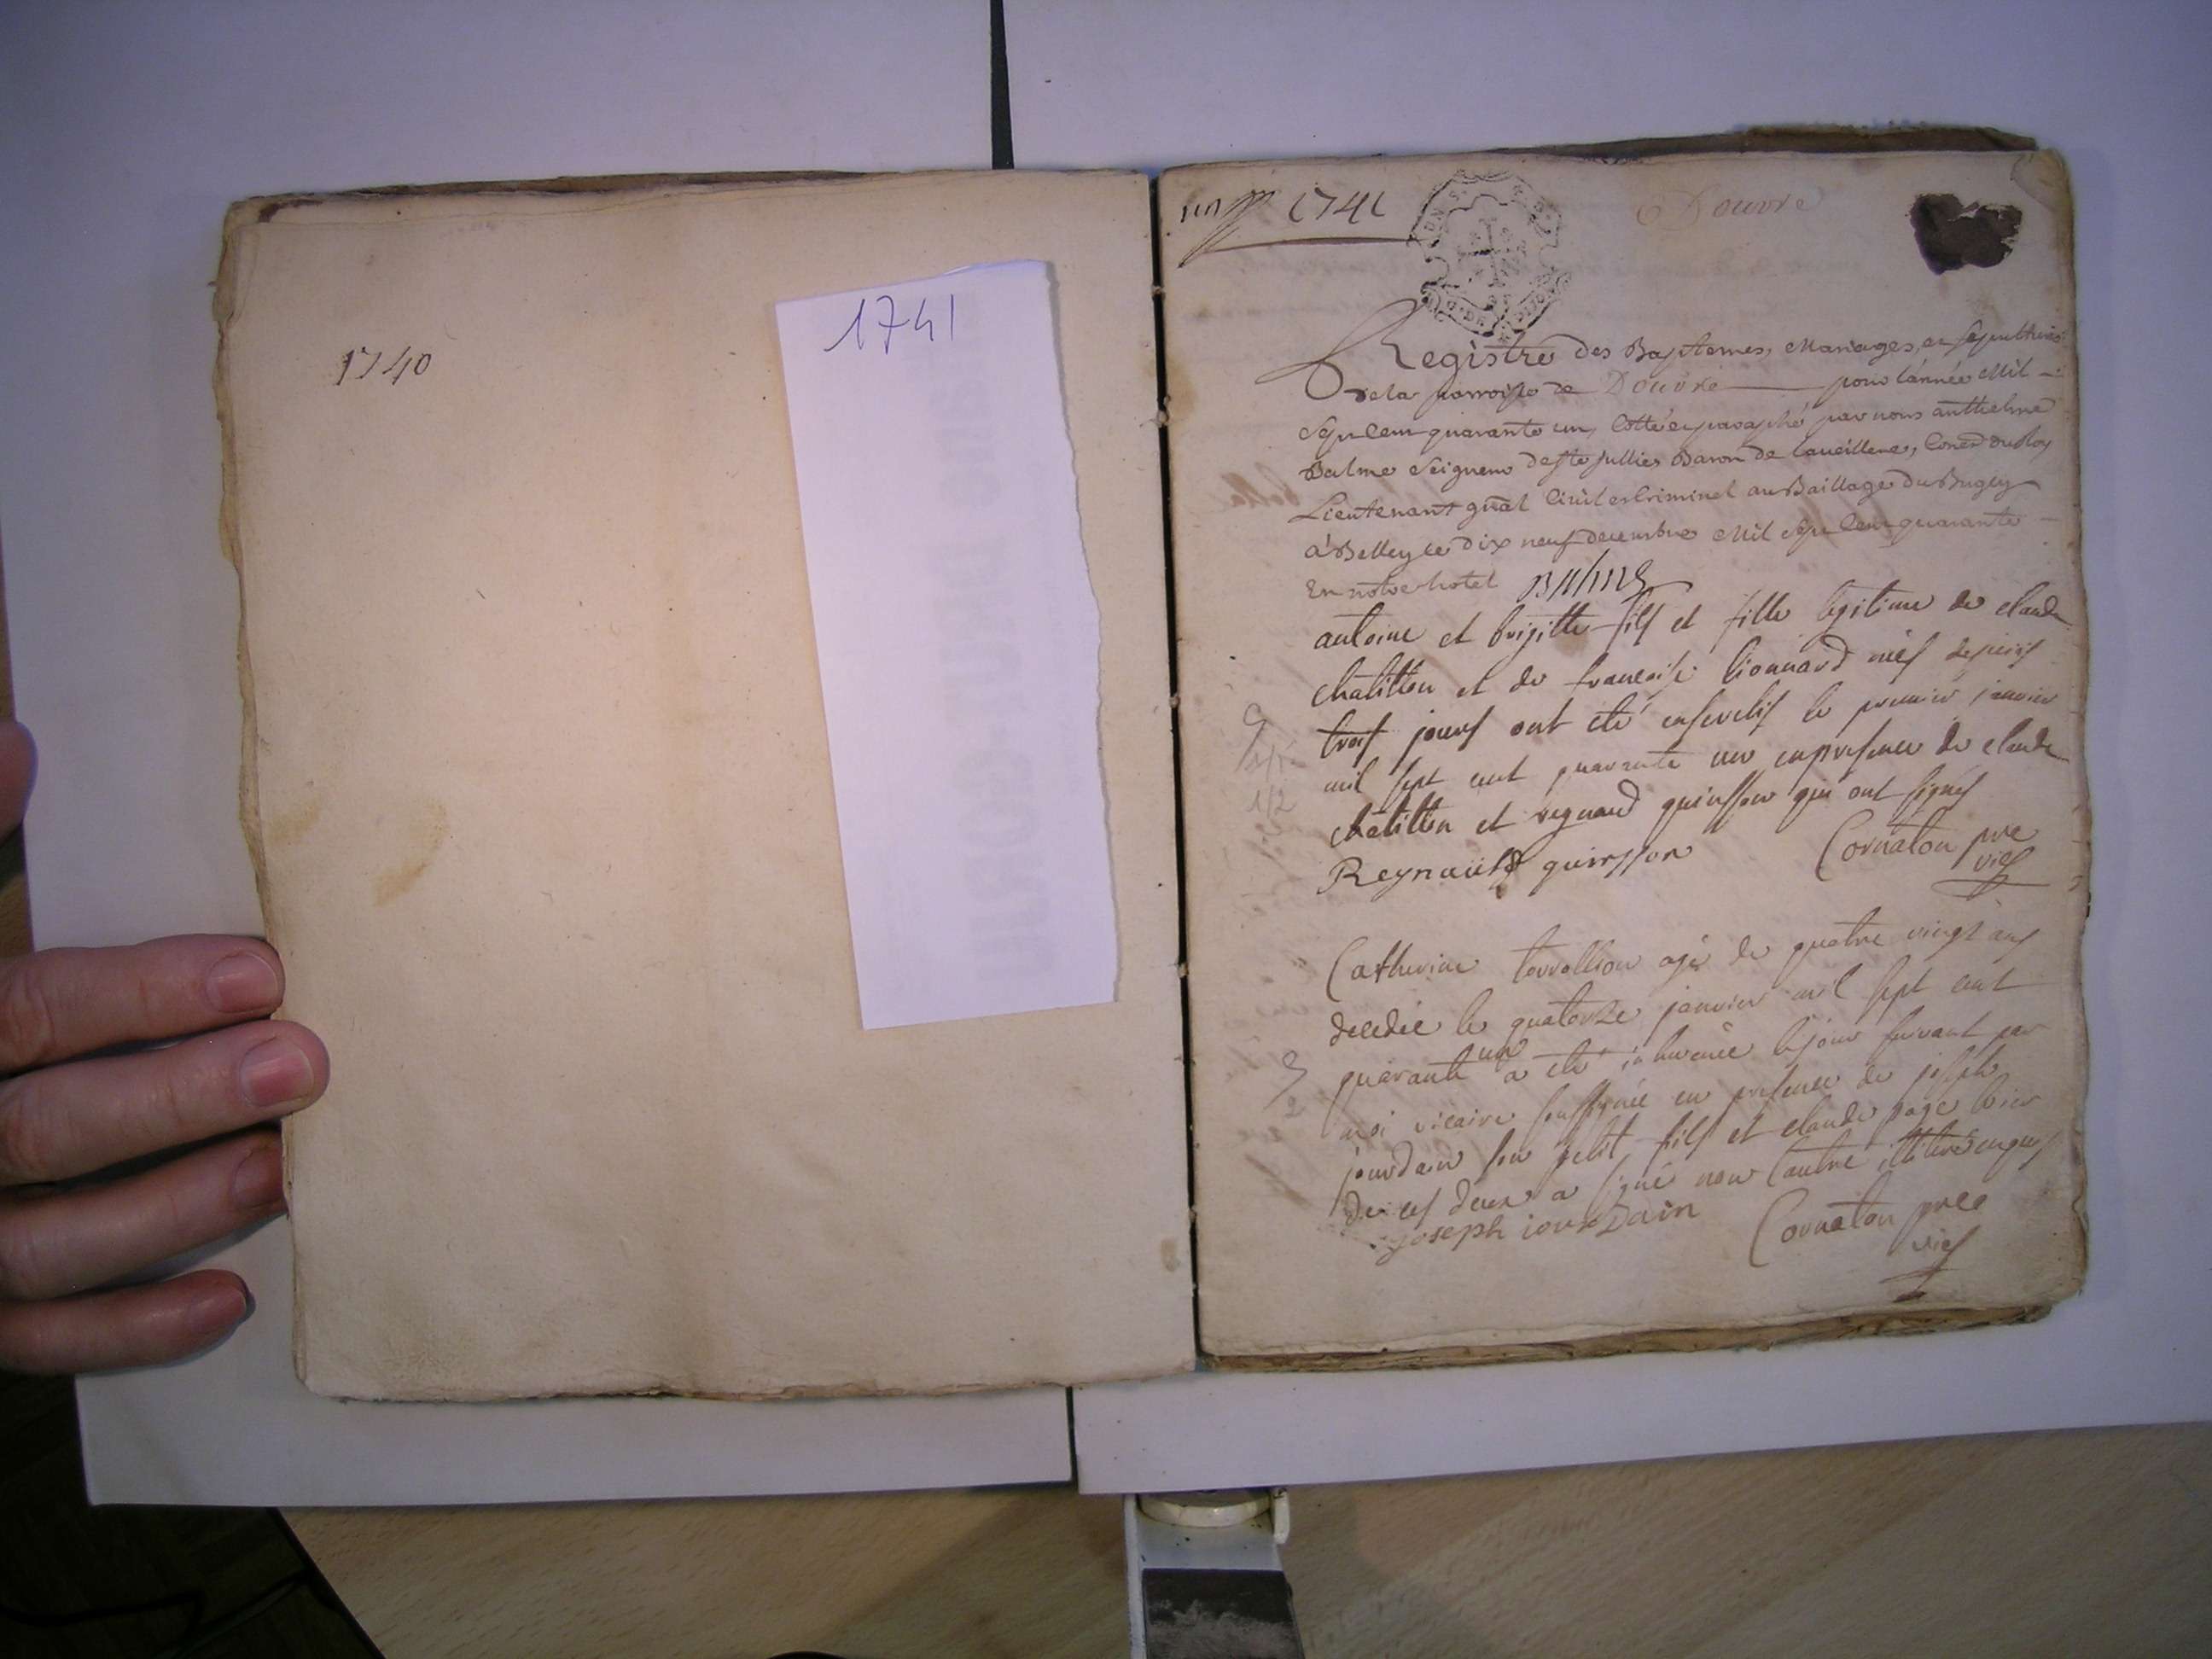 1740
1741
1741
Douvre
Registre des Baptemes, Mariages, et sepultures
De la parroisse de Douvre pour l'année Mil
Sept Cent quarante un, Cotté et paraphé par nous anthelme
Balme Seigneur de Ste Jullies Baron de Conser du Roy
Lieutenant gñal Civil et Criminel au Baillage du Bugey
à Belley ce dix neuf decembre Mil Sept Cent quarante
En notre hotel Balme
antoine et brigitte fils et fille legitime de claude
chatillon et de francoise lionnard nés depuis
trois jours ont été ensevelis le premier janvier
mil sept cent quarante un en presence de claude
chatillon et regnaud quinsson qui ont signés
Reynauld quinsson Cornaton pre
vic
Catherine agé de quatre vingt ans
decedée le quatorze janvier mil sept cent
un
quarante a été inhumée le jour suivant par
moi vicaire soussigné en presence de joseph
jourdain son petit fils et claude page
de ces deux a signé non l'autre illiteré enquis
joseph iourdain Cornaton pre
vic